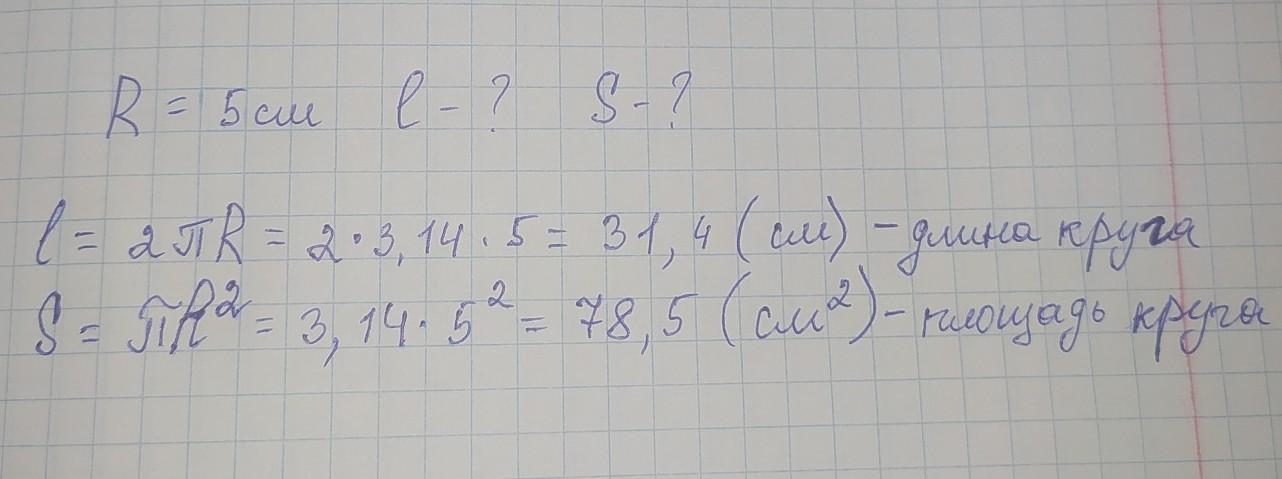 R = 5 см   l - ?   S - ?
l = 2πR = 2 · 3,14 · 5 = 31,4 (см) - длина круга
S = πR² = 3,14 · 5² = 78,5 (см²) - площадь круга